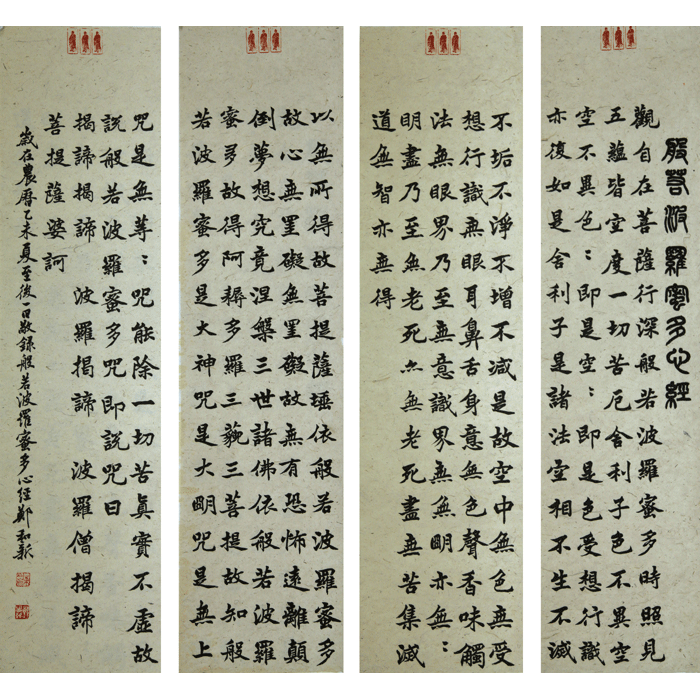 般若波羅蜜多心經
觀自在菩薩行深般若波羅蜜多時照見
五蘊皆空度一切苦厄舍利子色不異空
空不異色：即是空：即是色受想行識
亦復如是舍利子是諸法空相不生不滅
不垢不淨不增不減是故空中無色無受
想行識無眼耳鼻舌身意無色聲香味觸
法無眼界乃至無意識界無無明亦無：
明盡乃至無老死亦無老死盡無苦集滅
道無智亦無得
以無所得故菩提薩埵依般若波羅蜜多
故心無罣礙無罣礙故無有恐怖遠離顛
倒夢想究竟涅槃三世諸佛依般若波羅
蜜多故得阿耨多羅三藐三菩提故知般
若波羅蜜多是大神咒是大明咒是無上
咒是無等：咒能除一切苦真實不虛故
說般若波羅蜜多咒即說咒曰
揭諦揭諦 波羅揭諦 波羅僧揭諦
菩提薩婆訶
歲在農曆乙未夏至後一日敬錄般若波羅蜜多心經鄭和新